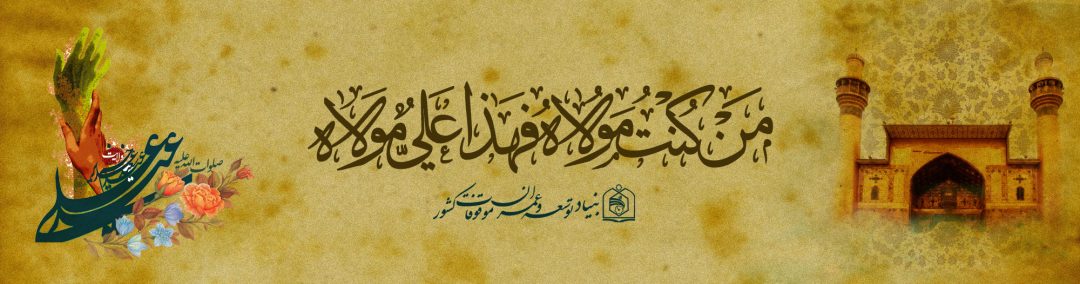 مَنْ كُنْتُ مَوْلَاهُ فَهَذَا عَلِيٌّ مَوْلَاه
بنیاد توسعه و عمران موقوفات کشور
صلوات الله علیه
علی